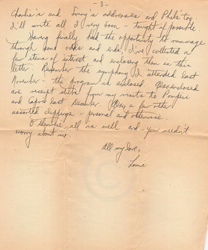 - 3 -
Charlie's and Irving's addresses and Philo try
I'll write all I can - tonight if possible.
Having finally had the opportunity to
through some odds and ends, I've collected a
few items of interest and enclosing them in this
letter. Remember the symphony I attended last
November - the program is enclosed. Also enclosed
are receipt slips from my visits to Pompeii
and Capri last December. (Also a few other
assorted clippings - personal and otherwise.
Otherwise all is well and you needn't
worry about me.
All my love,